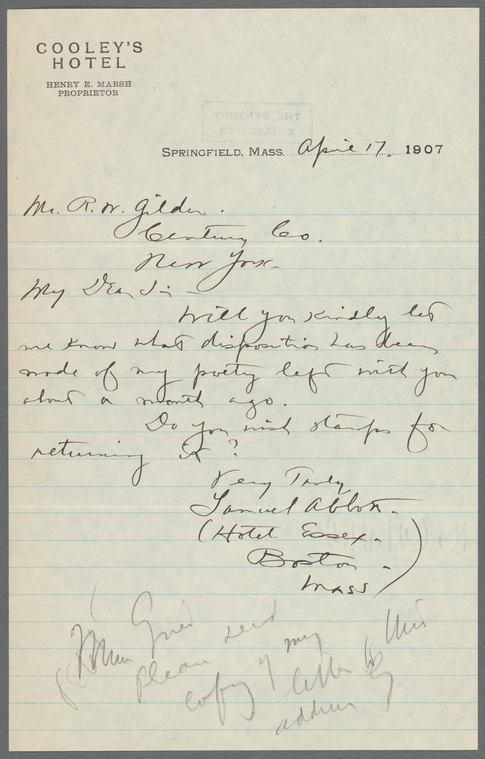 COOLEY'S
HOTEL
HENRY E. MARSH
PROPRIETOR
THE CENTURY
COLLECTION
SPRINGFIELD, MASS. April 17, 1907
Mr. R. W. Gilder.
Century Co.
New York.
My Dear Sir –
Will you kindly let
me know what disposition has been
made of my poetry left with you
about a month ago.
Do you wish stamps for
returning it?
Very Truly
Samuel Abbott.
(Hotel Essex.
Boston.
Mass)
Please send
copy of my
letter to this
address